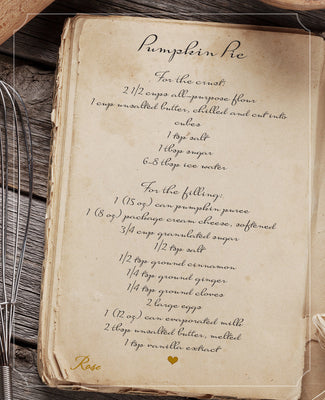 Pumpkin Pie
For the crust:
2 1/2 cups all-purpose flour
1 cup unsalted butter, chilled and cut into
cubes
1 tsp salt
1 tbsp sugar
6-8 tbsp ice water
For the filling:
1 (15 oz) can pumpkin puree
1 (8 oz) package cream cheese, softened
3/4 cup granulated sugar
1/2 tsp salt
1/2 tsp ground cinnamon
1/4 tsp ground ginger
1/4 tsp ground cloves
2 large eggs
1 (12 oz) can evaporated milk
2 tbsp unsalted butter, melted
1 tsp vanilla extract
Rose